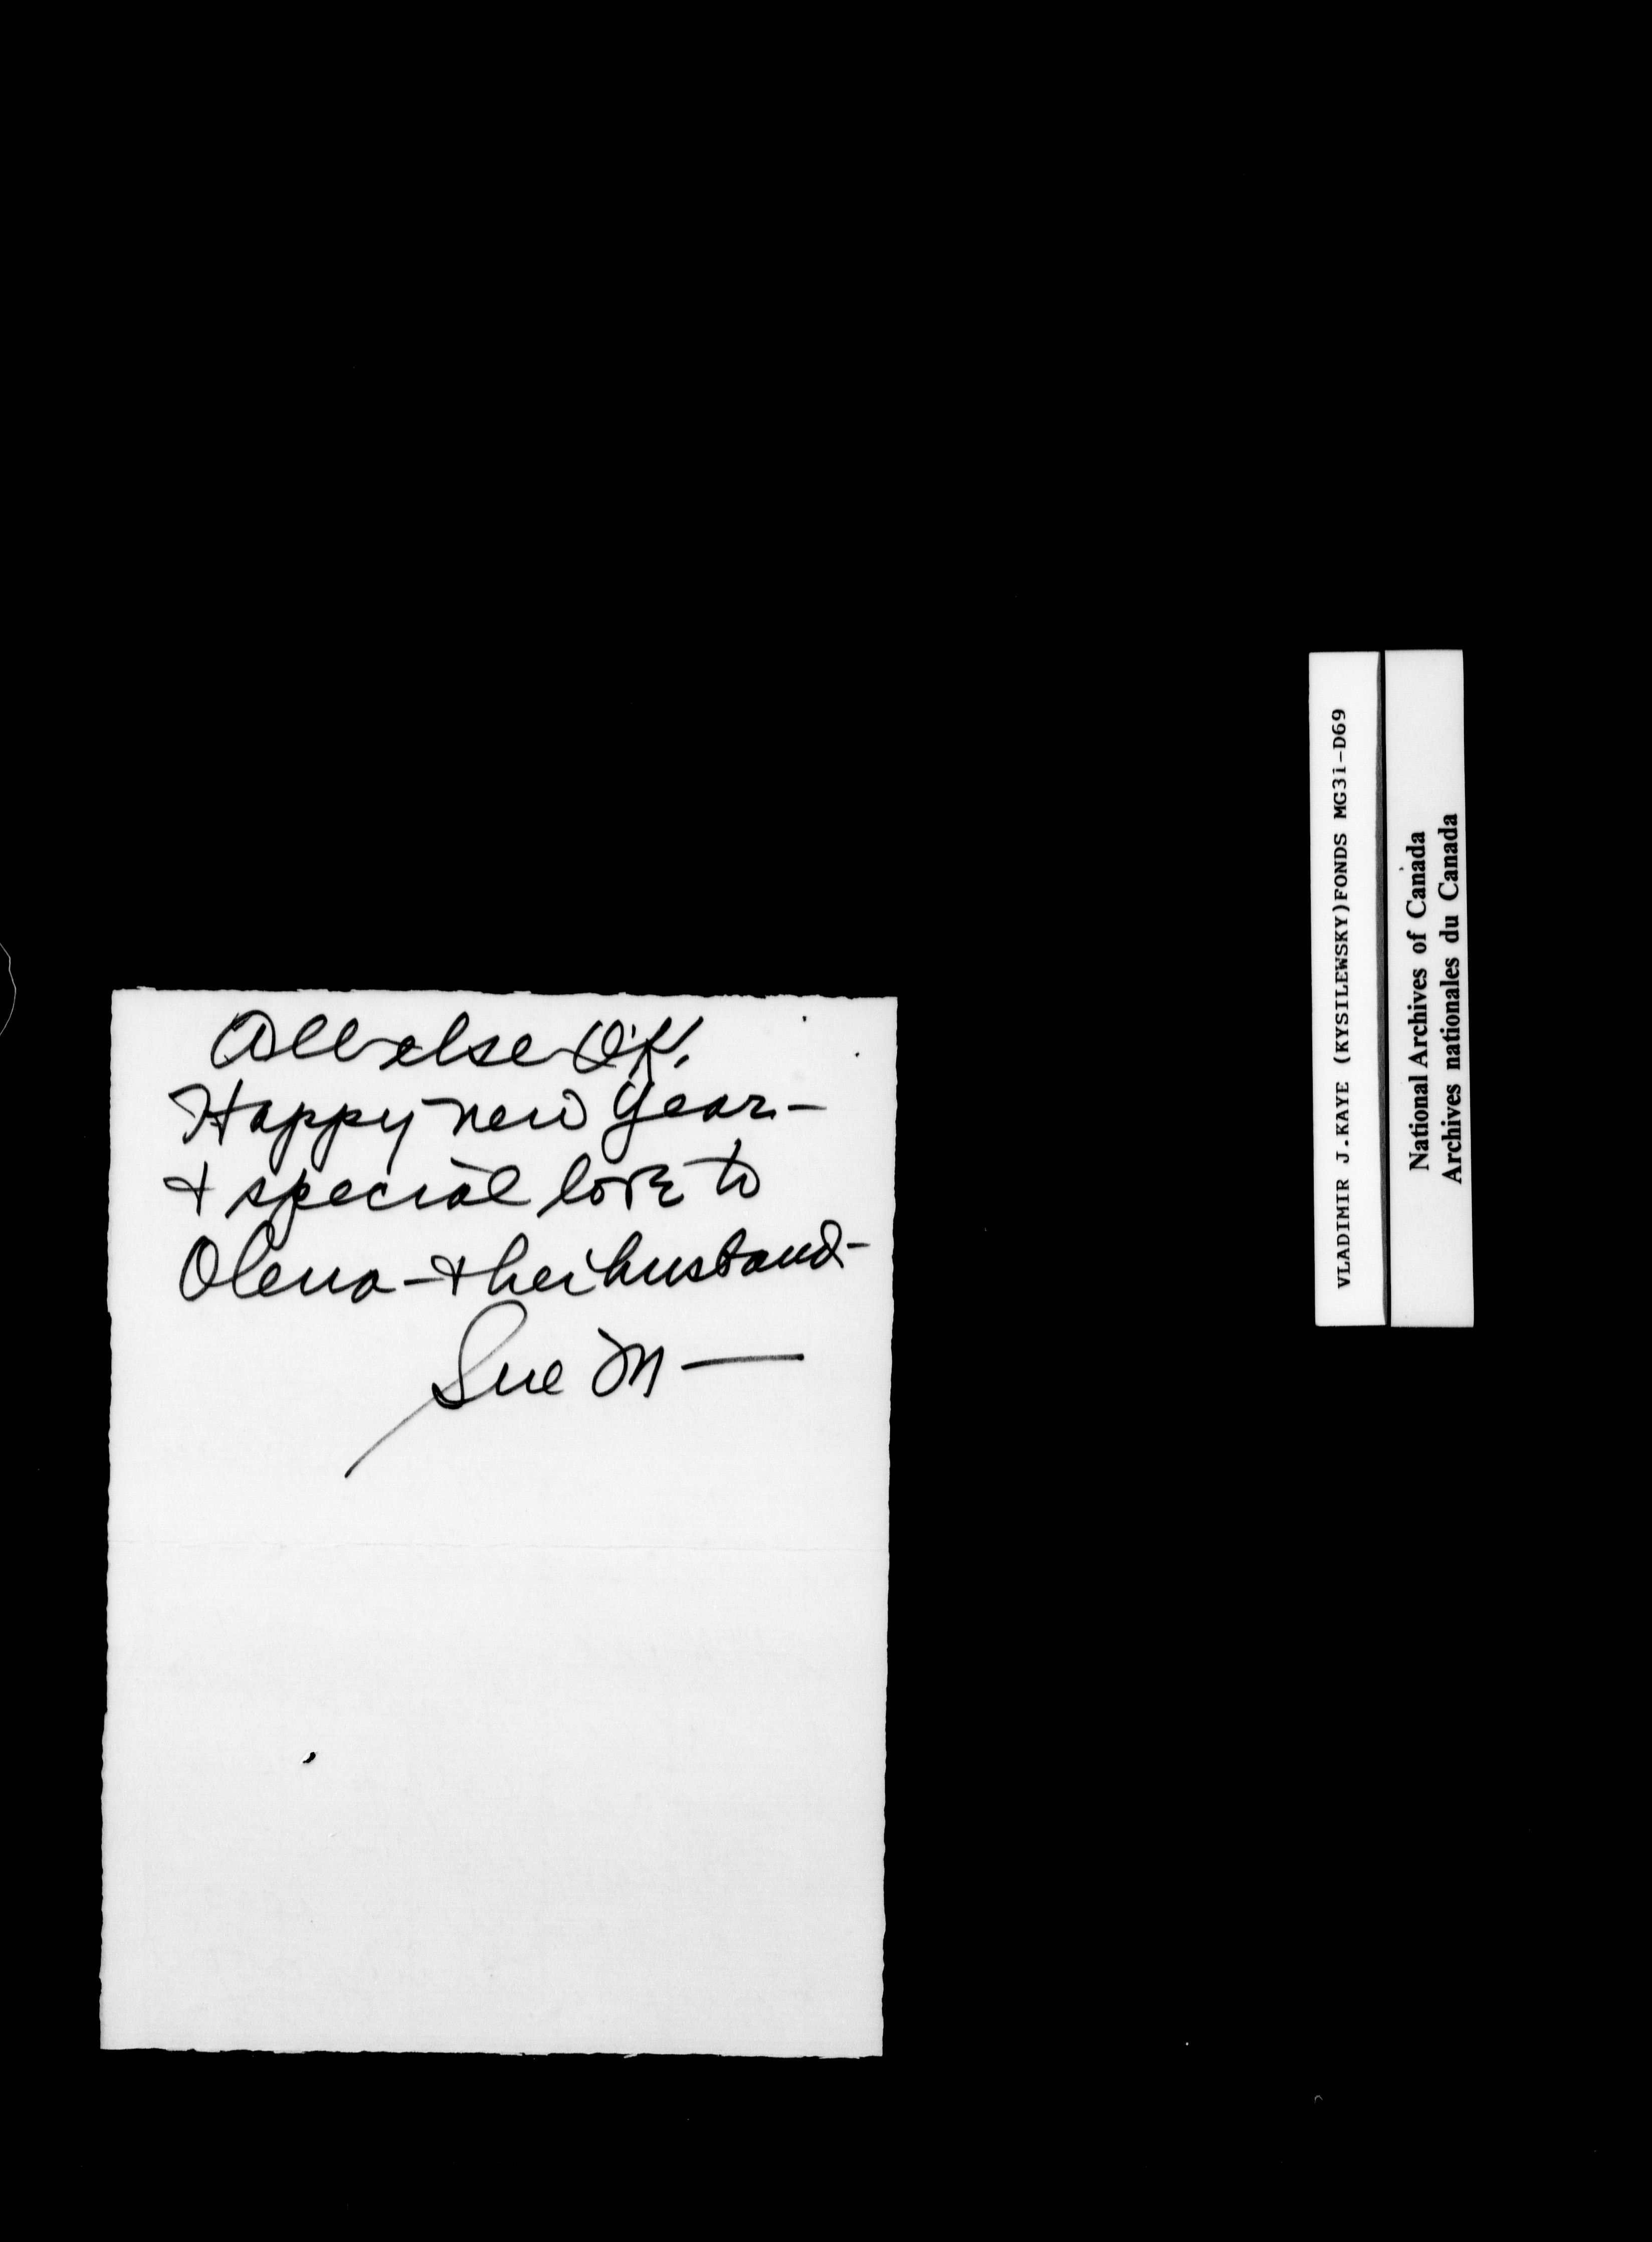 All else O.K.
Happy new year -
+ special love to
Olena - + her husband -
Sue M —
VLADIMIR J.KAYE (KYSILEWSKY)FONDS MG31-D69
National Archives of Canada
Archives nationales du Canada